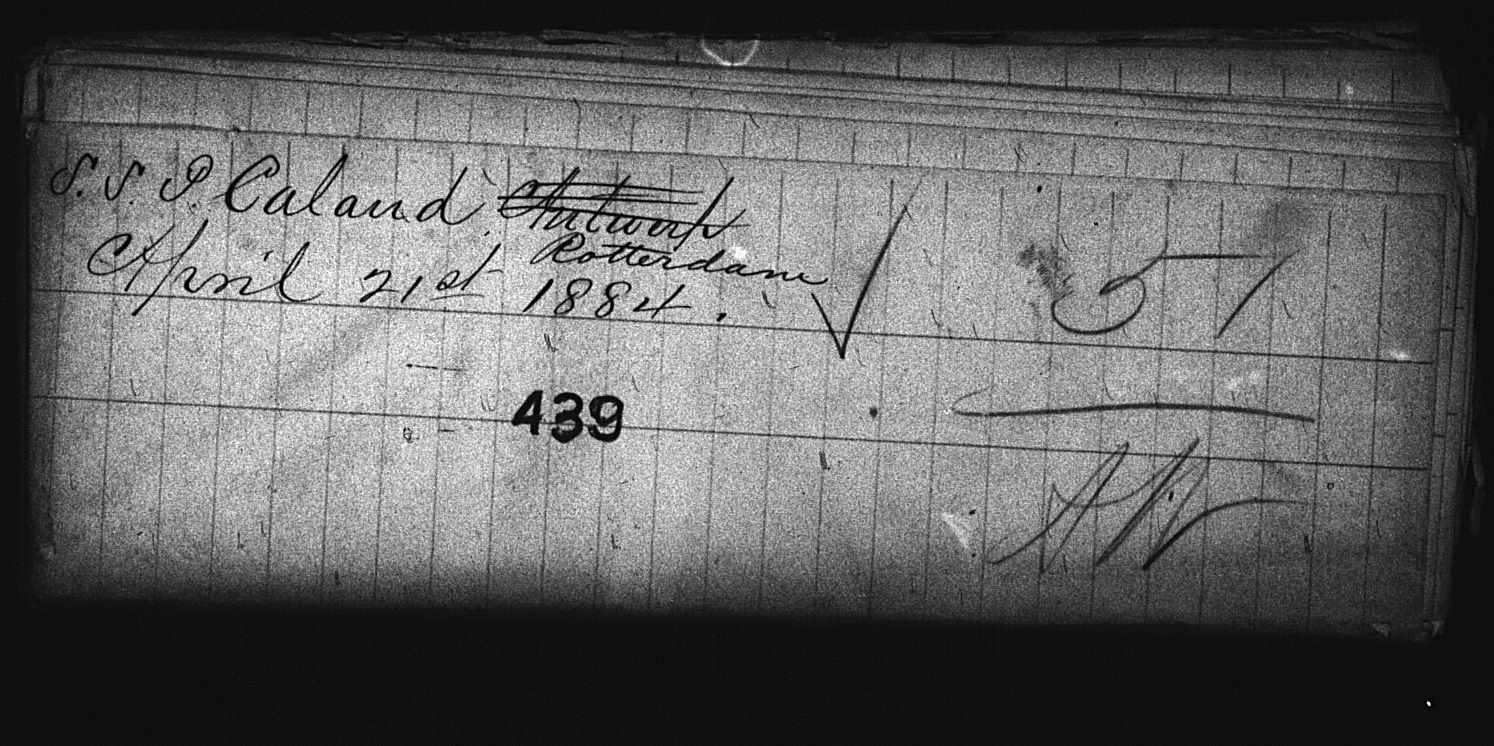 S. S. P. Caland. Antwerp
Rotterdam
April 21st 1884.
57
439